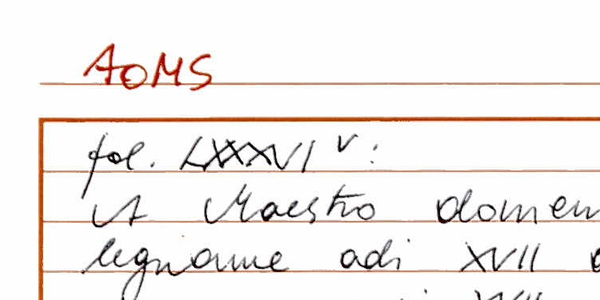 AOMS
fol. LXXXVI v:
A Maestro domen
legname adi XVII
XVII